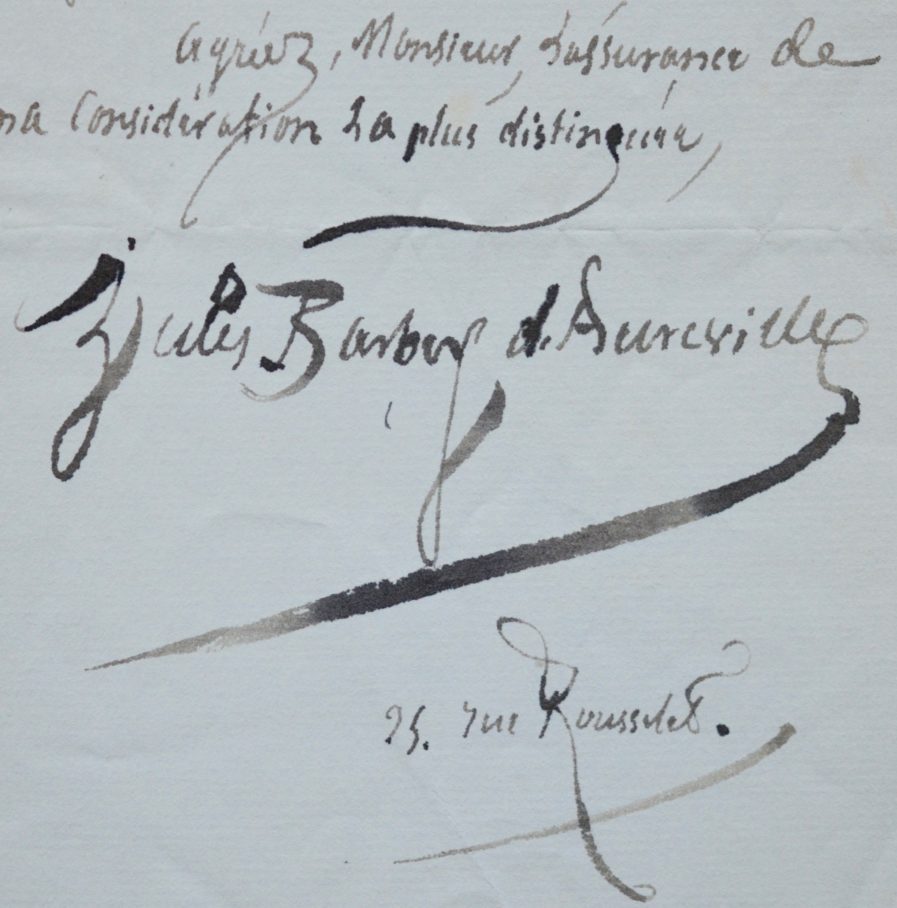 agréez, Monsieur, l'assurance de
ma considération la plus distinguée,
Jules Barbey d'Aurevilly
25. rue Rousselet.